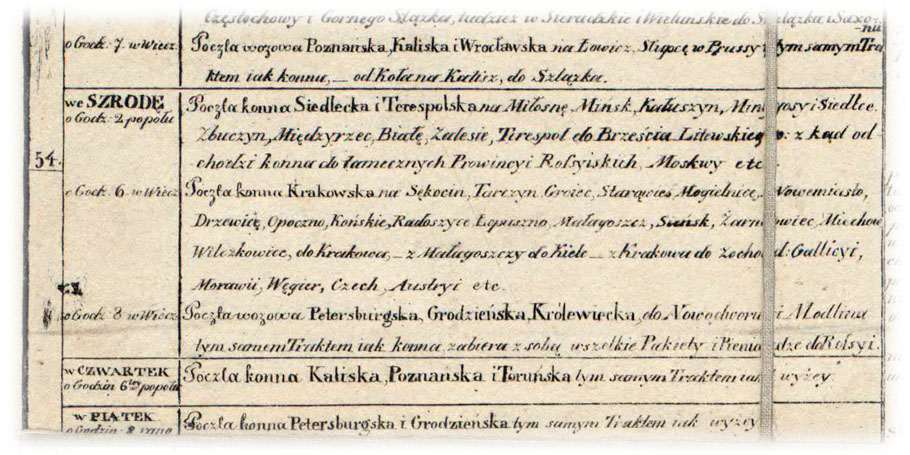 Częstochowy i Gornego Szlązka, tudzież w Sieradzkie i Wieluńskie do Szlązka i Saxo-
nii
o Godz: 7. w Wiecz. Poczta wozowa Poznańska, Kaliska i Wrocławska na Łowicz, Słupcę w Prussy tym samym Tra-
ktem iak konna, — od Koła na Kalisz, do Szlązka.
we SZRODĘ Poczta konna Siedlecka i Terespolska na Miłosnę Mińsk, Kałuszyn, Mingosy i Siedlce.
o Godz: 2. popołu: Zbuczyn, Międzyrzec, Białę, Zalesie, Terespol do Brześcia Litewskiego: z kąd od-
54. chodzi konna do tamecznych Prowincyi Rossyiskich, Moskwy etc
o Godz: 6. w Wiecz. Poczta konna Krakowska na Sękocin, Tarczyn Groiec, Starąwieś Mogielnicę, Nowemiasto,
Drzewicę, Opoczno, Końskie, Radoszyce Łopuszno, Małagoszcz, Żarnowiec, Miechow
Wilczkowice, do Krakowa, — z Małagoszczy do Kielc — z Krakowa do zachod: Gallicyi,
Morawii, Węgier, Czech, Austryi etc.
o Godz: 8 w Wiecz. Poczta wozowa Petersburgska, Grodzieńska, Królewiecka, do Nowodworu i Modlina
tym samem Traktem iak konna, zabiera z sobą wszelkie Pakiety i Pieniądze do Rossyi.
w CZWARTEK Poczta konna Kaliska, Poznańska i Toruńska tym samym Traktem iak wyżey
o Godzin 6tey popołu:
w PIĄTEK Poczta konna Petersburgska i Grodzieńska tym samym Traktem iak wyżey
o Godzin: 8 rano